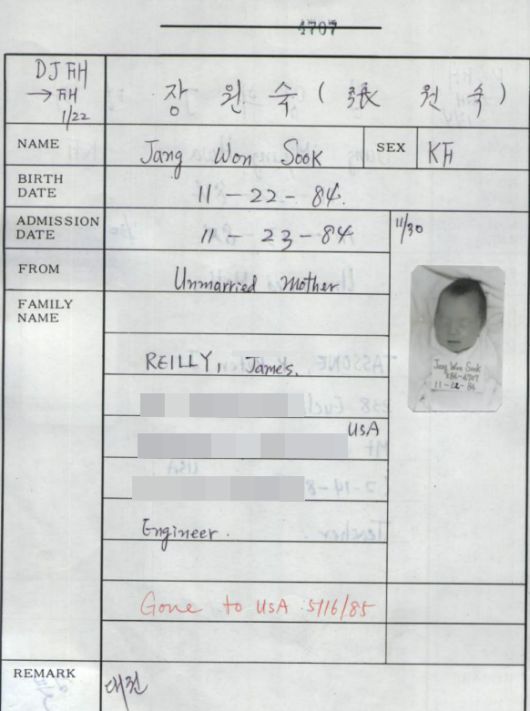 4707
DJ FH
→ FH
1/22
장 원 숙 (張 원 숙)
NAME Jang Won Sook SEX KF
BIRTH DATE 11-22-84.
ADMISSION DATE 11-23-84 11/30
FROM Unmarried Mother
FAMILY NAME
REILLY, James.
USA
Engineer.
Gone to USA 5/16/85
Jang Won Sook
K84-4707
11-22-84
REMARK 대전